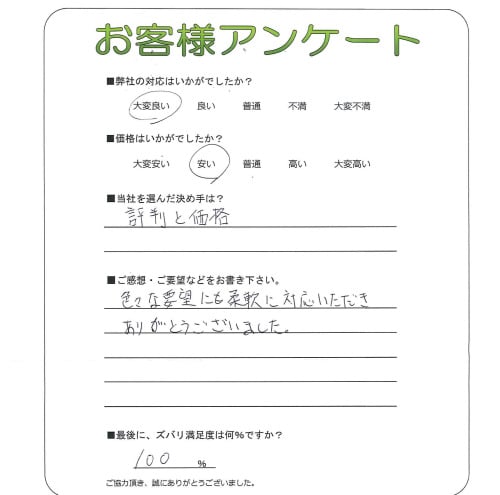 お客様アンケート
■弊社の対応はいかがでしたか？
大変良い 良い 普通 不満 大変不満
■価格はいかがでしたか？
大変安い 安い 普通 高い 大変高い
■当社を選んだ決め手は？
評判と価格
■ご感想・ご要望などをお書き下さい。
色々な要望にも柔軟に対応いただき
ありがとうございました。
■最後に、ズバリ満足度は何％ですか？
100 ％
ご協力頂き、誠にありがとうございました。